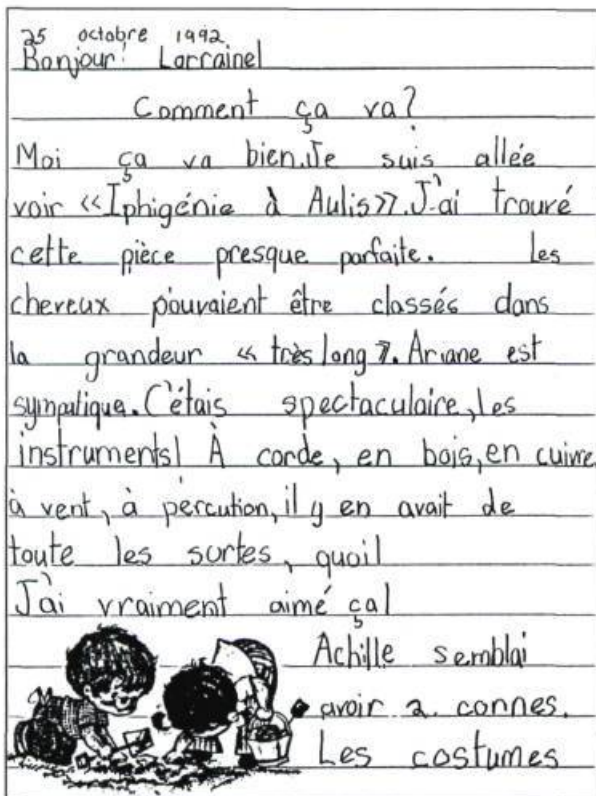 25 octobre 1992
Bonjour! Lorraine!
Comment ça va?
Moi ça va bien. Je suis allée
voir «Iphigénie à Aulis». J'ai trouvé
cette pièce presque parfaite. Les
cheveux pouvaient être classés dans
la grandeur « très long ». Ariane est
sympatique. C'étais spectaculaire, les
instruments! À corde, en bois, en cuivre
à vent, à percution, il y en avait de
toute les sortes, quoi!
J'ai vraiment aimé ça!
Achille semblai
avoir 2 connes.
Les costumes